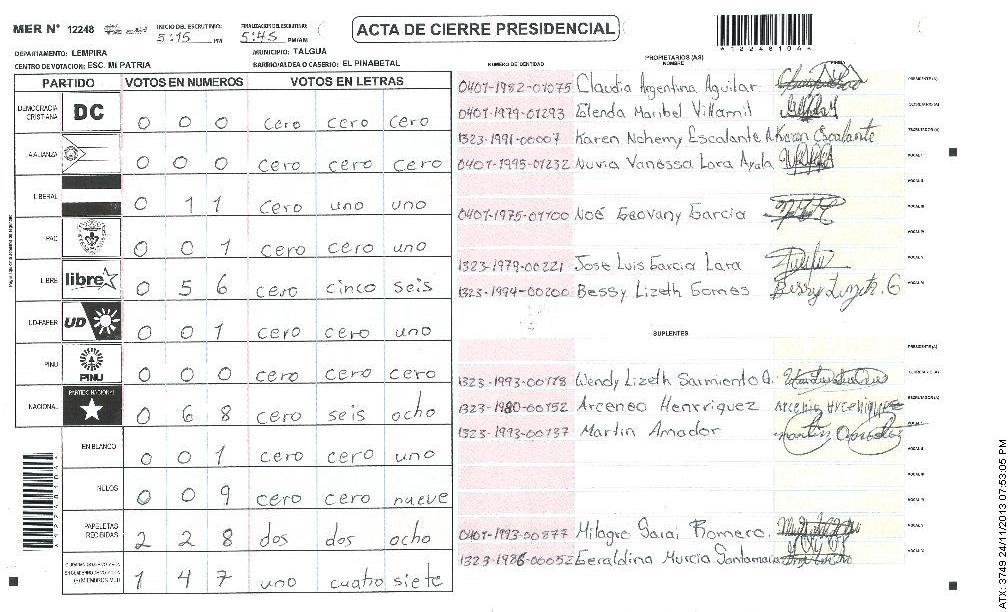 MER Nº 12248
INICIO DEL ESCRUTINIO: 5:15 PM
FINALIZACION DEL ESCRUTINIO: 5:45 PM/AM
ACTA DE CIERRE PRESIDENCIAL
DEPARTAMENTO: LEMPIRA
MUNICIPIO: TALGUA
CENTRO DE VOTACION: ESC. MI PATRIA
BARRIO/ALDEA O CASERIO: EL PINABETAL
PARTIDO VOTOS EN NUMEROS VOTOS EN LETRAS
DEMOCRACIA CRISTIANA DC 0 0 0 cero cero cero
ALIANZA 0 0 0 cero cero cero
LIBERAL 0 1 1 cero uno uno
PAC 0 0 1 cero cero uno
LIBRE libre 0 5 6 cero cinco seis
UD-FAPER UD 0 0 1 cero cero uno
PINU PINU 0 0 0 cero cero cero
NACIONAL PARTIDO NACIONAL 0 6 8 cero seis ocho
EN BLANCO 0 0 1 cero cero uno
NULOS 0 0 9 cero cero nueve
PAPELETAS RECIBIDAS 2 2 8 dos dos ocho
1 4 7 uno cuatro siete
PROPIETARIOS (AS)
NUMERO DE IDENTIDAD NOMBRE FIRMA
0401-1982-01075 Claudia Argentina Aguilar PRESIDENTE(A)
0401-1979-01293 Elenda Maribel Villamil SECRETARIO(A)
1323-1991-00007 Karen Nohemy Escalante A Karen Escalante ESCRUTADOR(A)
0401-1995-01232 Nuvia Vanessa Lara Ayala VOCAL I
VOCAL II
0401-1975-01100 Noé Geovany Garcia VOCAL III
VOCAL IV
1323-1979-00221 Jose Luis Garcia Lara VOCAL V
1323-1994-00200 Bessy Lizeth Gomes Bessy Lizeth. G VOCAL VI
SUPLENTES
PRESIDENTE(A)
1323-1993-00178 Wendy Lizeth Sarmiento SECRETARIO(A)
1323-1980-00152 Arceneo Henrriquez ESCRUTADOR(A)
1323-1993-00137 Martin Amador VOCAL I
VOCAL II
VOCAL III
VOCAL IV
0401-1993-00877 Milagro Sarai Romero. VOCAL V
1323-1986-00052 Geraldina Murcia Santamaria VOCAL VI
ATX: 3749 24/11/2013 07:53:05 PM